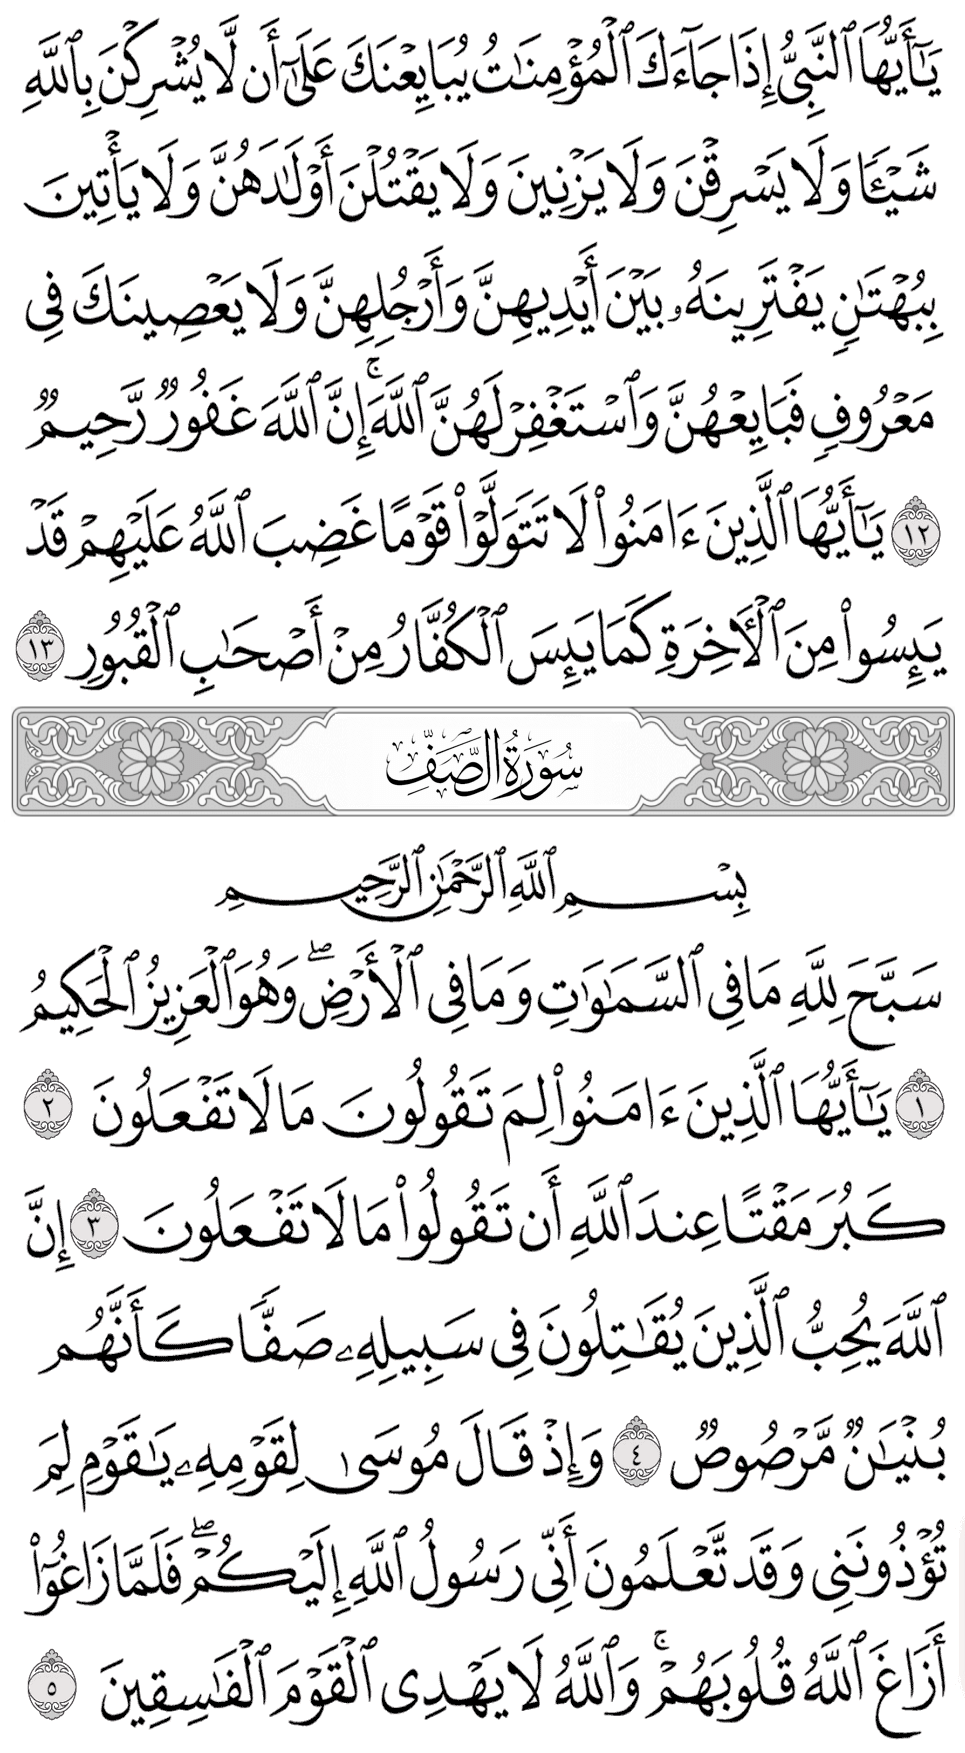 يَٰٓأَيُّهَا ٱلنَّبِيُّ إِذَا جَآءَكَ ٱلْمُؤْمِنَٰتُ يُبَايِعْنَكَ عَلَىٰٓ أَن لَّا يُشْرِكْنَ بِٱللَّهِ
شَيْـًٔا وَلَا يَسْرِقْنَ وَلَا يَزْنِينَ وَلَا يَقْتُلْنَ أَوْلَٰدَهُنَّ وَلَا يَأْتِينَ
بِبُهْتَٰنٍ يَفْتَرِينَهُۥ بَيْنَ أَيْدِيهِنَّ وَأَرْجُلِهِنَّ وَلَا يَعْصِينَكَ فِى
مَعْرُوفٍ فَبَايِعْهُنَّ وَٱسْتَغْفِرْ لَهُنَّ ٱللَّهَ ۚ إِنَّ ٱللَّهَ غَفُورٌ رَّحِيمٌ
۝١٢ يَٰٓأَيُّهَا ٱلَّذِينَ ءَامَنُوا۟ لَا تَتَوَلَّوْا۟ قَوْمًا غَضِبَ ٱللَّهُ عَلَيْهِمْ قَدْ
يَئِسُوا۟ مِنَ ٱلْـَٔاخِرَةِ كَمَا يَئِسَ ٱلْكُفَّارُ مِنْ أَصْحَٰبِ ٱلْقُبُورِ ۝١٣
سُورَةُ الصَّفِّ
بِسْمِ ٱللَّهِ ٱلرَّحْمَٰنِ ٱلرَّحِيمِ
سَبَّحَ لِلَّهِ مَا فِى ٱلسَّمَٰوَٰتِ وَمَا فِى ٱلْأَرْضِ ۖ وَهُوَ ٱلْعَزِيزُ ٱلْحَكِيمُ
۝١ يَٰٓأَيُّهَا ٱلَّذِينَ ءَامَنُوا۟ لِمَ تَقُولُونَ مَا لَا تَفْعَلُونَ ۝٢
كَبُرَ مَقْتًا عِندَ ٱللَّهِ أَن تَقُولُوا۟ مَا لَا تَفْعَلُونَ ۝٣ إِنَّ
ٱللَّهَ يُحِبُّ ٱلَّذِينَ يُقَٰتِلُونَ فِى سَبِيلِهِۦ صَفًّا كَأَنَّهُم
بُنْيَٰنٌ مَّرْصُوصٌ ۝٤ وَإِذْ قَالَ مُوسَىٰ لِقَوْمِهِۦ يَٰقَوْمِ لِمَ
تُؤْذُونَنِى وَقَد تَّعْلَمُونَ أَنِّى رَسُولُ ٱللَّهِ إِلَيْكُمْ ۖ فَلَمَّا زَاغُوٓا۟
أَزَاغَ ٱللَّهُ قُلُوبَهُمْ ۚ وَٱللَّهُ لَا يَهْدِى ٱلْقَوْمَ ٱلْفَٰسِقِينَ ۝٥